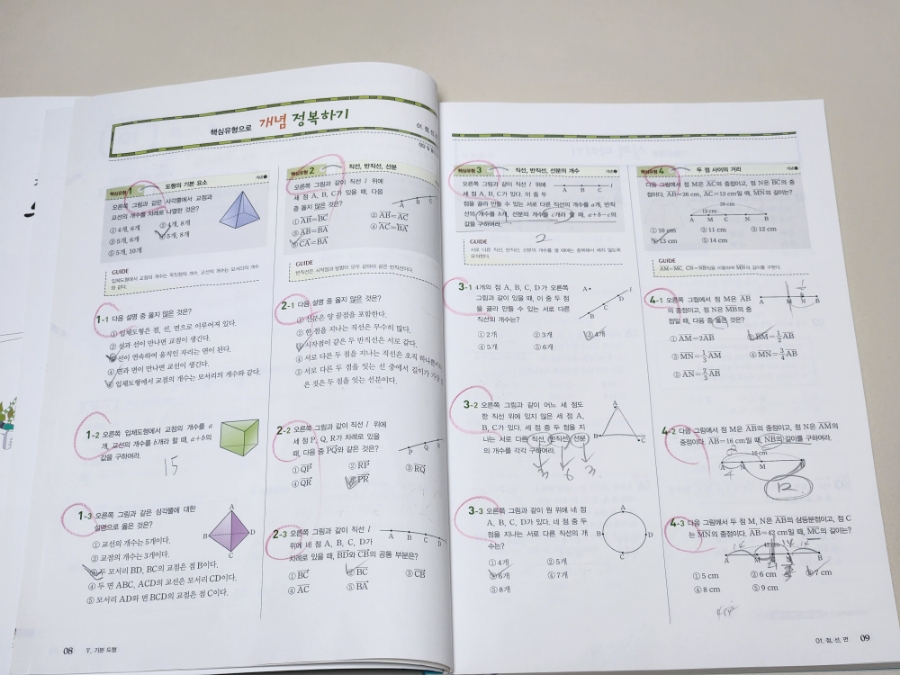 핵심유형으로 개념 정복하기
핵심유형 1 도형의 기본 요소
오른쪽 그림과 같은 사각뿔에서 교점과
교선의 개수를 차례로 나열한 것은?
① 4개, 6개 ② 4개, 8개
③ 5개, 6개 ④ 5개, 8개
⑤ 5개, 10개
GUIDE
입체도형에서 교점의 개수는 꼭짓점의 개수, 교선의 개수는 모서리의 개수
와 같다.
1-1 다음 설명 중 옳지 않은 것은?
① 입체도형은 점, 선, 면으로 이루어져 있다.
② 선과 선이 만나면 교점이 생긴다.
③ 선이 연속하여 움직인 자리는 면이 된다.
④ 면과 면이 만나면 교선이 생긴다.
⑤ 입체도형에서 교점의 개수는 모서리의 개수와 같다.
1-2 오른쪽 입체도형에서 교점의 개수를 a
개, 교선의 개수를 b개라 할 때, a+b의
값을 구하여라.
15
1-3 오른쪽 그림과 같은 삼각뿔에 대한
설명으로 옳은 것은?
A
B
D
C
① 교선의 개수는 5개이다.
② 교점의 개수는 3개이다.
③ 두 모서리 BD, BC의 교점은 점 B이다.
④ 두 면 ABC, ACD의 교선은 모서리 CD이다.
⑤ 모서리 AD와 면 BCD의 교점은 점 C이다.
핵심유형 2 직선, 반직선, 선분
오른쪽 그림과 같이 직선 l 위에
세 점 A, B, C가 있을 때, 다음
중 옳지 않은 것은?
A B C
① AB=BC ② AB=AC
③ AB=BA ④ AC=BA
⑤ CA=BA
GUIDE
반직선은 시작점과 방향이 모두 같아야 같은 반직선이다.
2-1 다음 설명 중 옳지 않은 것은?
① 선분은 양 끝점을 포함한다.
② 한 점을 지나는 직선은 무수히 많다.
③ 시작점이 같은 두 반직선은 서로 같다.
④ 서로 다른 두 점을 지나는 직선은 오직 하나뿐이다.
⑤ 서로 다른 두 점을 잇는 선 중에서 길이가 가장 짧
은 것은 두 점을 잇는 선분이다.
2-2 오른쪽 그림과 같이 직선 l 위에
세 점 P, Q, R가 차례로 있을
때, 다음 중 PQ와 같은 것은?
P Q R
① QP ② RP ③ RQ
④ QR ⑤ PR
2-3 오른쪽 그림과 같이 직선 l
위에 네 점 A, B, C, D가
차례로 있을 때, BD와 CB의 공통 부분은?
A B C D
① BC ② BC ③ CB
④ AC ⑤ BA
08 7. 기본 도형
핵심유형 3 직선, 반직선, 선분의 개수
오른쪽 그림과 같이 직선 l 위에
세 점 A, B, C가 있다. 이 중 두
점을 골라 만들 수 있는 서로 다른 직선의 개수를 a개, 반직
선의 개수를 b개, 선분의 개수를 c개라 할 때, a+b-c의
값을 구하여라.
A B C l
2
GUIDE
3-1 4개의 점 A, B, C, D가 오른쪽
그림과 같이 있을 때, 이 중 두 점
을 골라 만들 수 있는 서로 다른
직선의 개수는?
A
B C D
① 2개 ② 3개 ③ 4개
④ 5개 ⑤ 6개
3-2 오른쪽 그림과 같이 어느 세 점도
한 직선 위에 있지 않은 세 점 A,
B, C가 있다. 세 점 중 두 점을 지
나는 서로 다른 직선, 반직선, 선분
의 개수를 각각 구하여라.
A
B C
3 6 3
3-3 오른쪽 그림과 같이 원 위에 네 점
A, B, C, D가 있다. 네 점 중 두
점을 지나는 서로 다른 직선의 개
수는?
A
B D
C
① 4개 ② 5개
③ 6개 ④ 7개
⑤ 8개
핵심유형 4 두 점 사이의 거리
다음 그림에서 점 M은 AC의 중점이고, 점 N은 BC의 중
점이다. AB=26 cm, AC=12 cm일 때, MN의 길이는?
26 cm
12 cm
A M C N B
① 10 cm ② 11 cm ③ 12 cm
④ 13 cm ⑤ 14 cm
GUIDE
4-1 오른쪽 그림에서 점 M은 AB
의 중점이고, 점 N은 MB의 중
점일 때, 다음 중 옳은 것은?
A M N B
① AM=2AB ② BM=1/2 AB
③ MN=1/3 AM ④ MN=3/4 AB
⑤ AN=2/3 AB
4-2 다음 그림에서 점 M은 AB의 중점이고, 점 N은 AM의
중점이다. AB=16 cm일 때, NB의 길이를 구하여라.
16 cm
A N M B
4
12
4-3 다음 그림에서 두 점 M, N은 AB의 삼등분점이고, 점 C
는 MN의 중점이다. AB=42 cm일 때, MC의 길이는?
A M C N B
① 5 cm ② 6 cm ③ 7 cm
④ 8 cm ⑤ 9 cm
01. 점, 선, 면 09